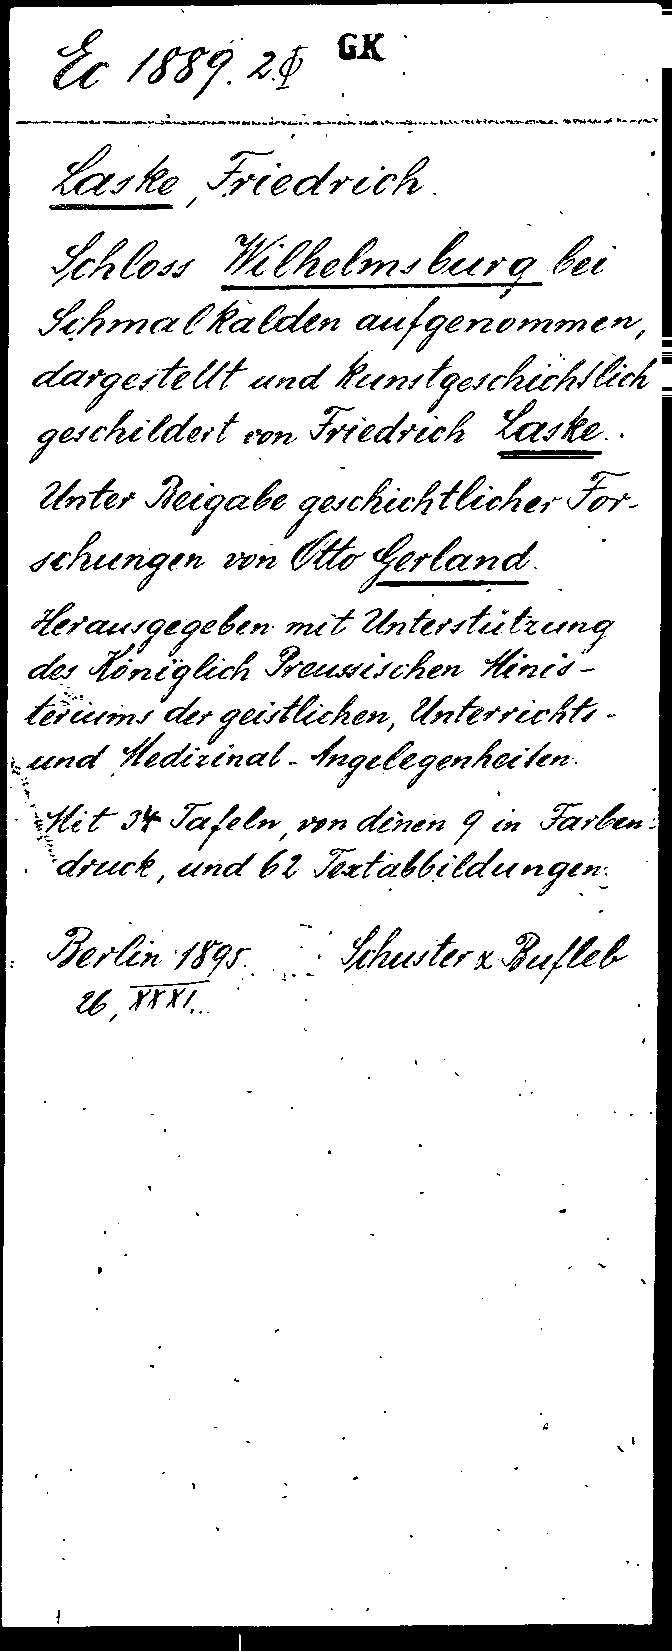 Ec 1889.2.Φ GK
Laske, Friedrich.
Schloss Wilhelmsburg bei
Schmalkalden aufgenommen,
dargestellt und kunstgeschichtlich
geschildert von Friedrich Laske.
Unter Beigabe geschichtlicher For-
schungen von Otto Gerland.
Herausgegeben mit Unterstützung
des Königlich Preussischen Minis-
teriums der geistlichen, Unterrichts-
und Medizinal-Angelegenheiten.
Mit 34 Tafeln, von denen 9 in Farben-
druck, und 62 Textabbildungen.
Berlin 1895. Schuster & Bufleb
26, XXXI.